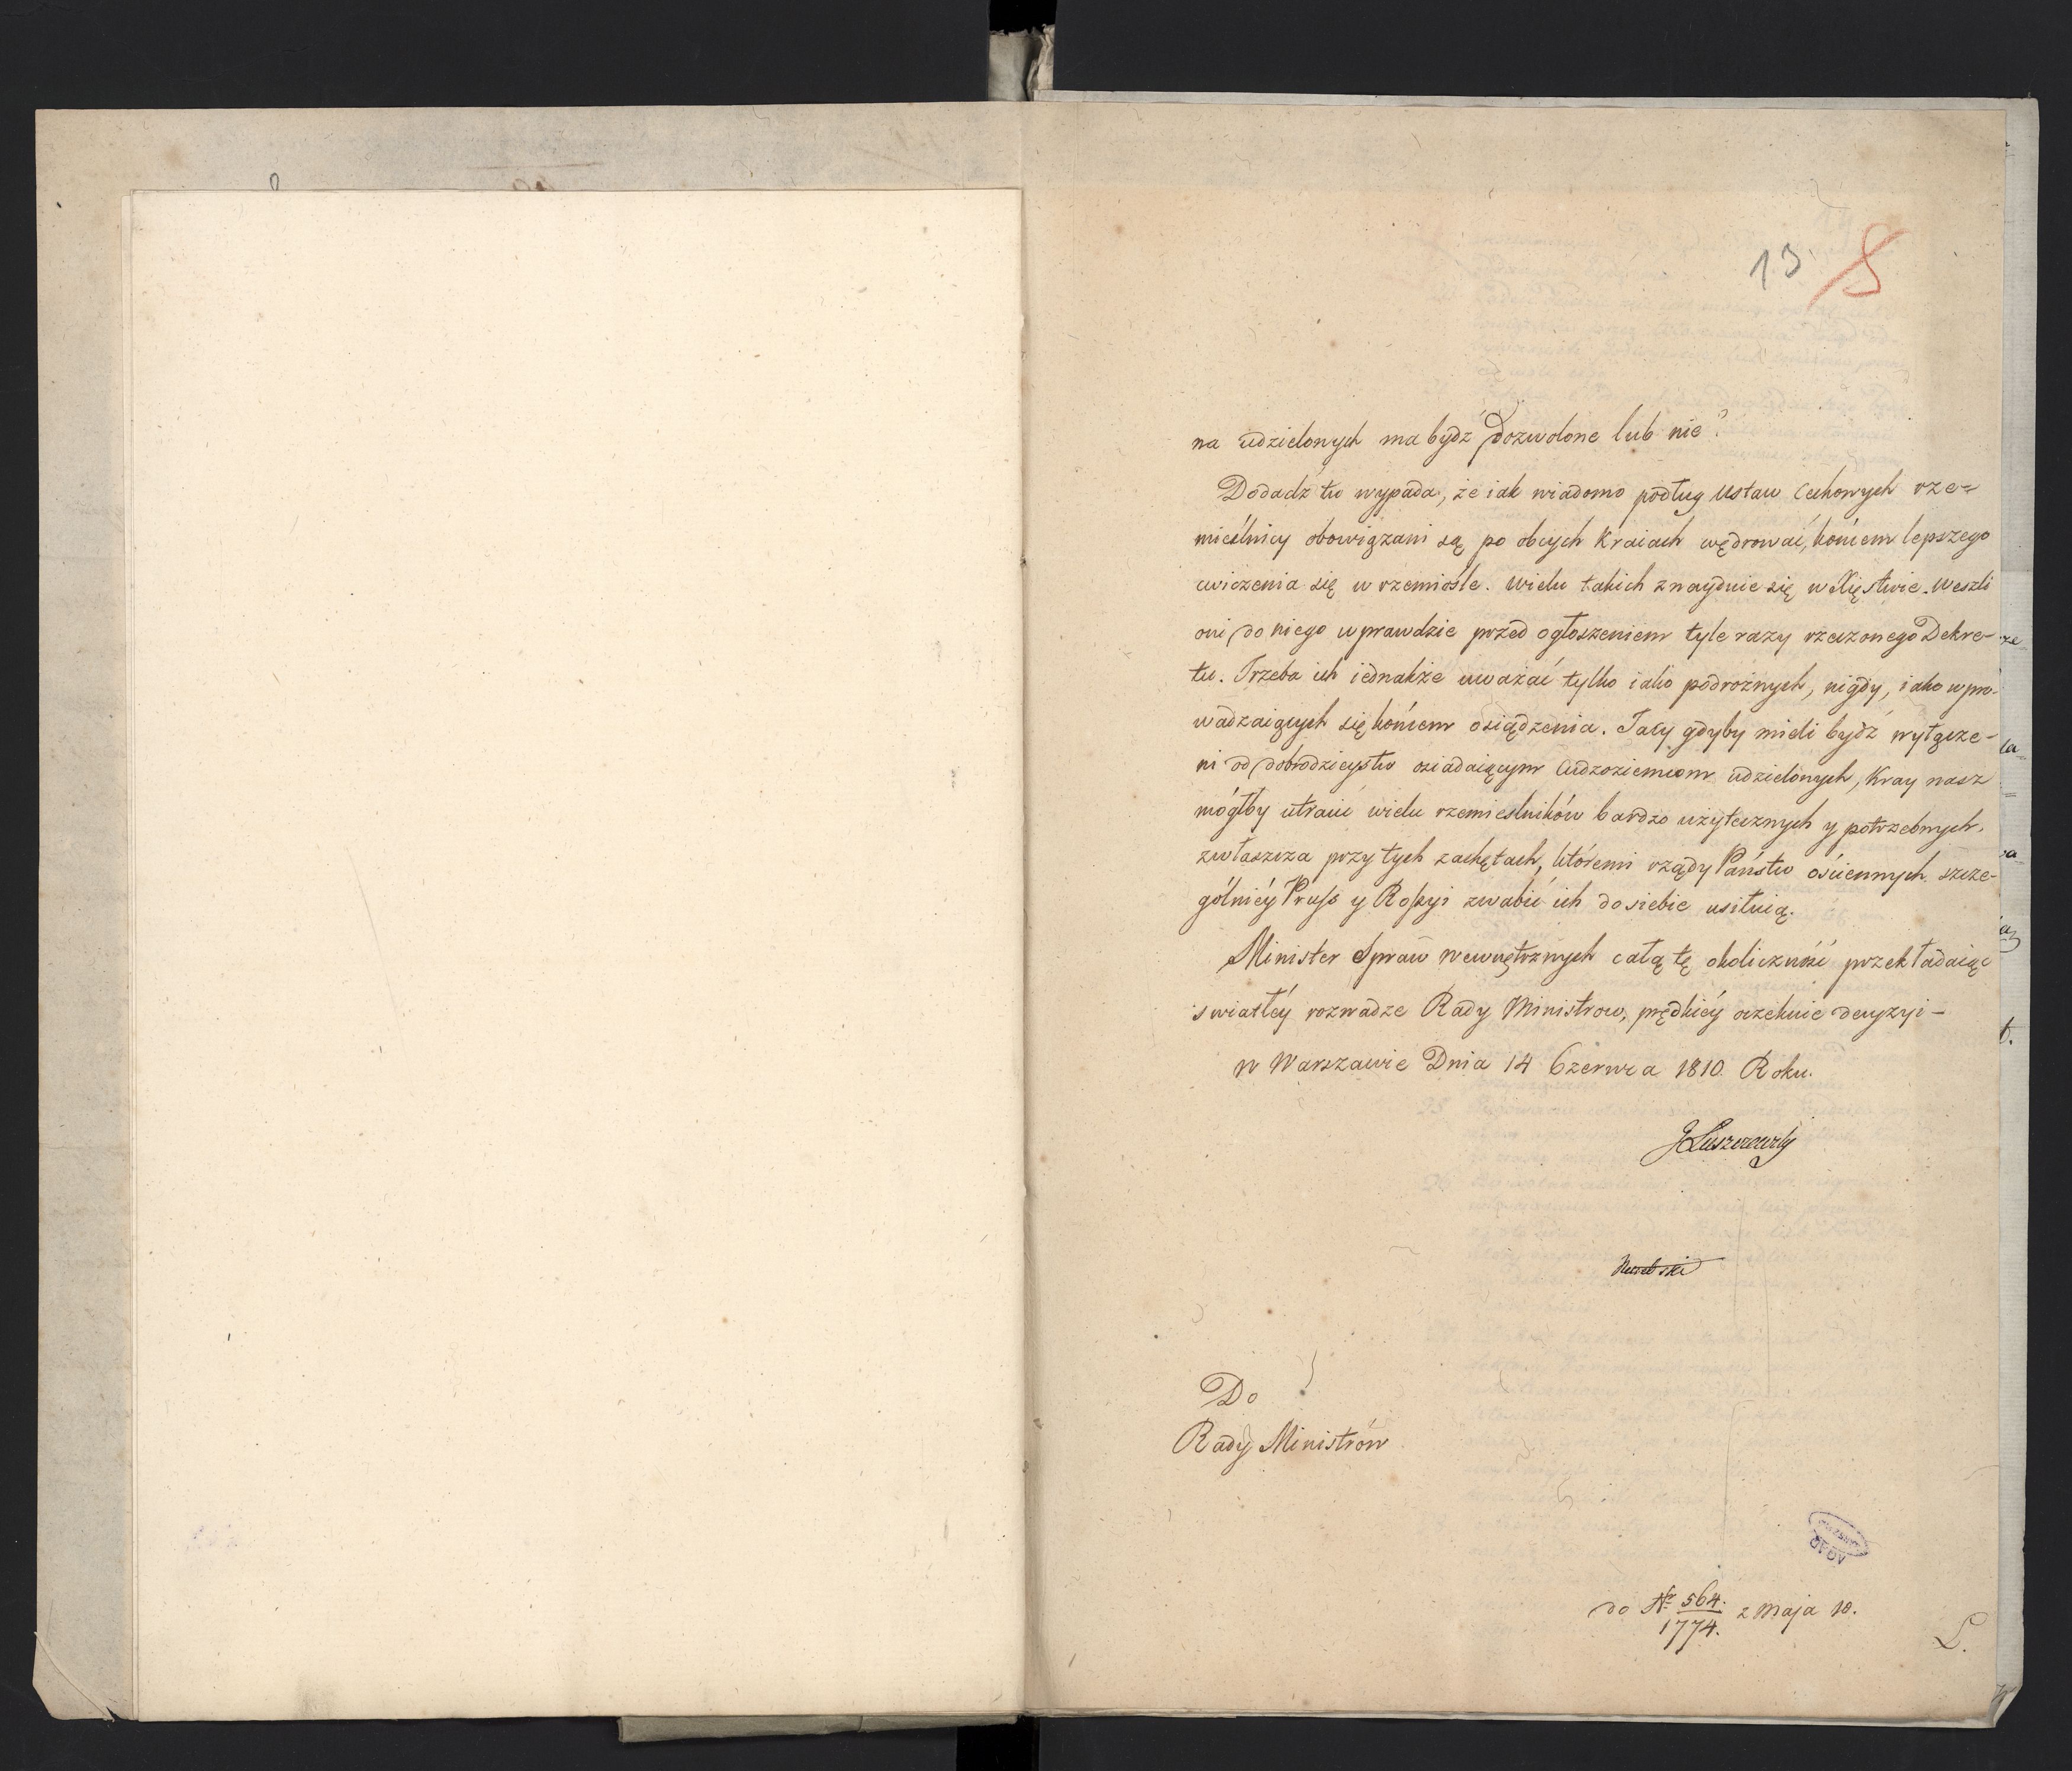 13 8
na udzielonych ma bydź dozwolone lub nie?
Dodadź tu wypada, że iak wiadomo podług Ustaw Cechowych rze=
mieślnicy obowiązani są po obcych Kraiach wędrować, końcem lepszego
cwiczenia się w rzemiośle. Wielu takich znayduie się w Xięstwie. Weszli
oni do niego wprawdzie przed ogłoszeniem tyle razy rzeczonego Dekre-
tu. Trzeba ich iednakże uważać tylko iako podrożnych, nigdy, iako wpro-
wadzaiących się końcem osiądzenia. Tacy gdyby mieli bydź wyłącze-
ni od dobrodzieystw osiadaiącym Cudzoziemcom udzielonych, Kray nasz
mógłby utracić wielu rzemieslników bardzo użytecznych y potrzebnych,
zwłaszcza przy tych zachętach, któremi rządy Państw ościennych szcze-
gólniéy Pruss y Rossyi zwabić ich do siebie usiłuią.
Minister Spraw wewnętrznych całą tę okoliczność przekładaiąc
swiatłéy rozwadze Rady Ministrow, prędkiéy oczekuie decyzyi -
w Warszawie Dnia 14 Czerwca 1810. Roku.
J Łuszczewski
Do
Rady Ministrów
AGAD
do Nr 564.
1774. z Maja 10.
L.